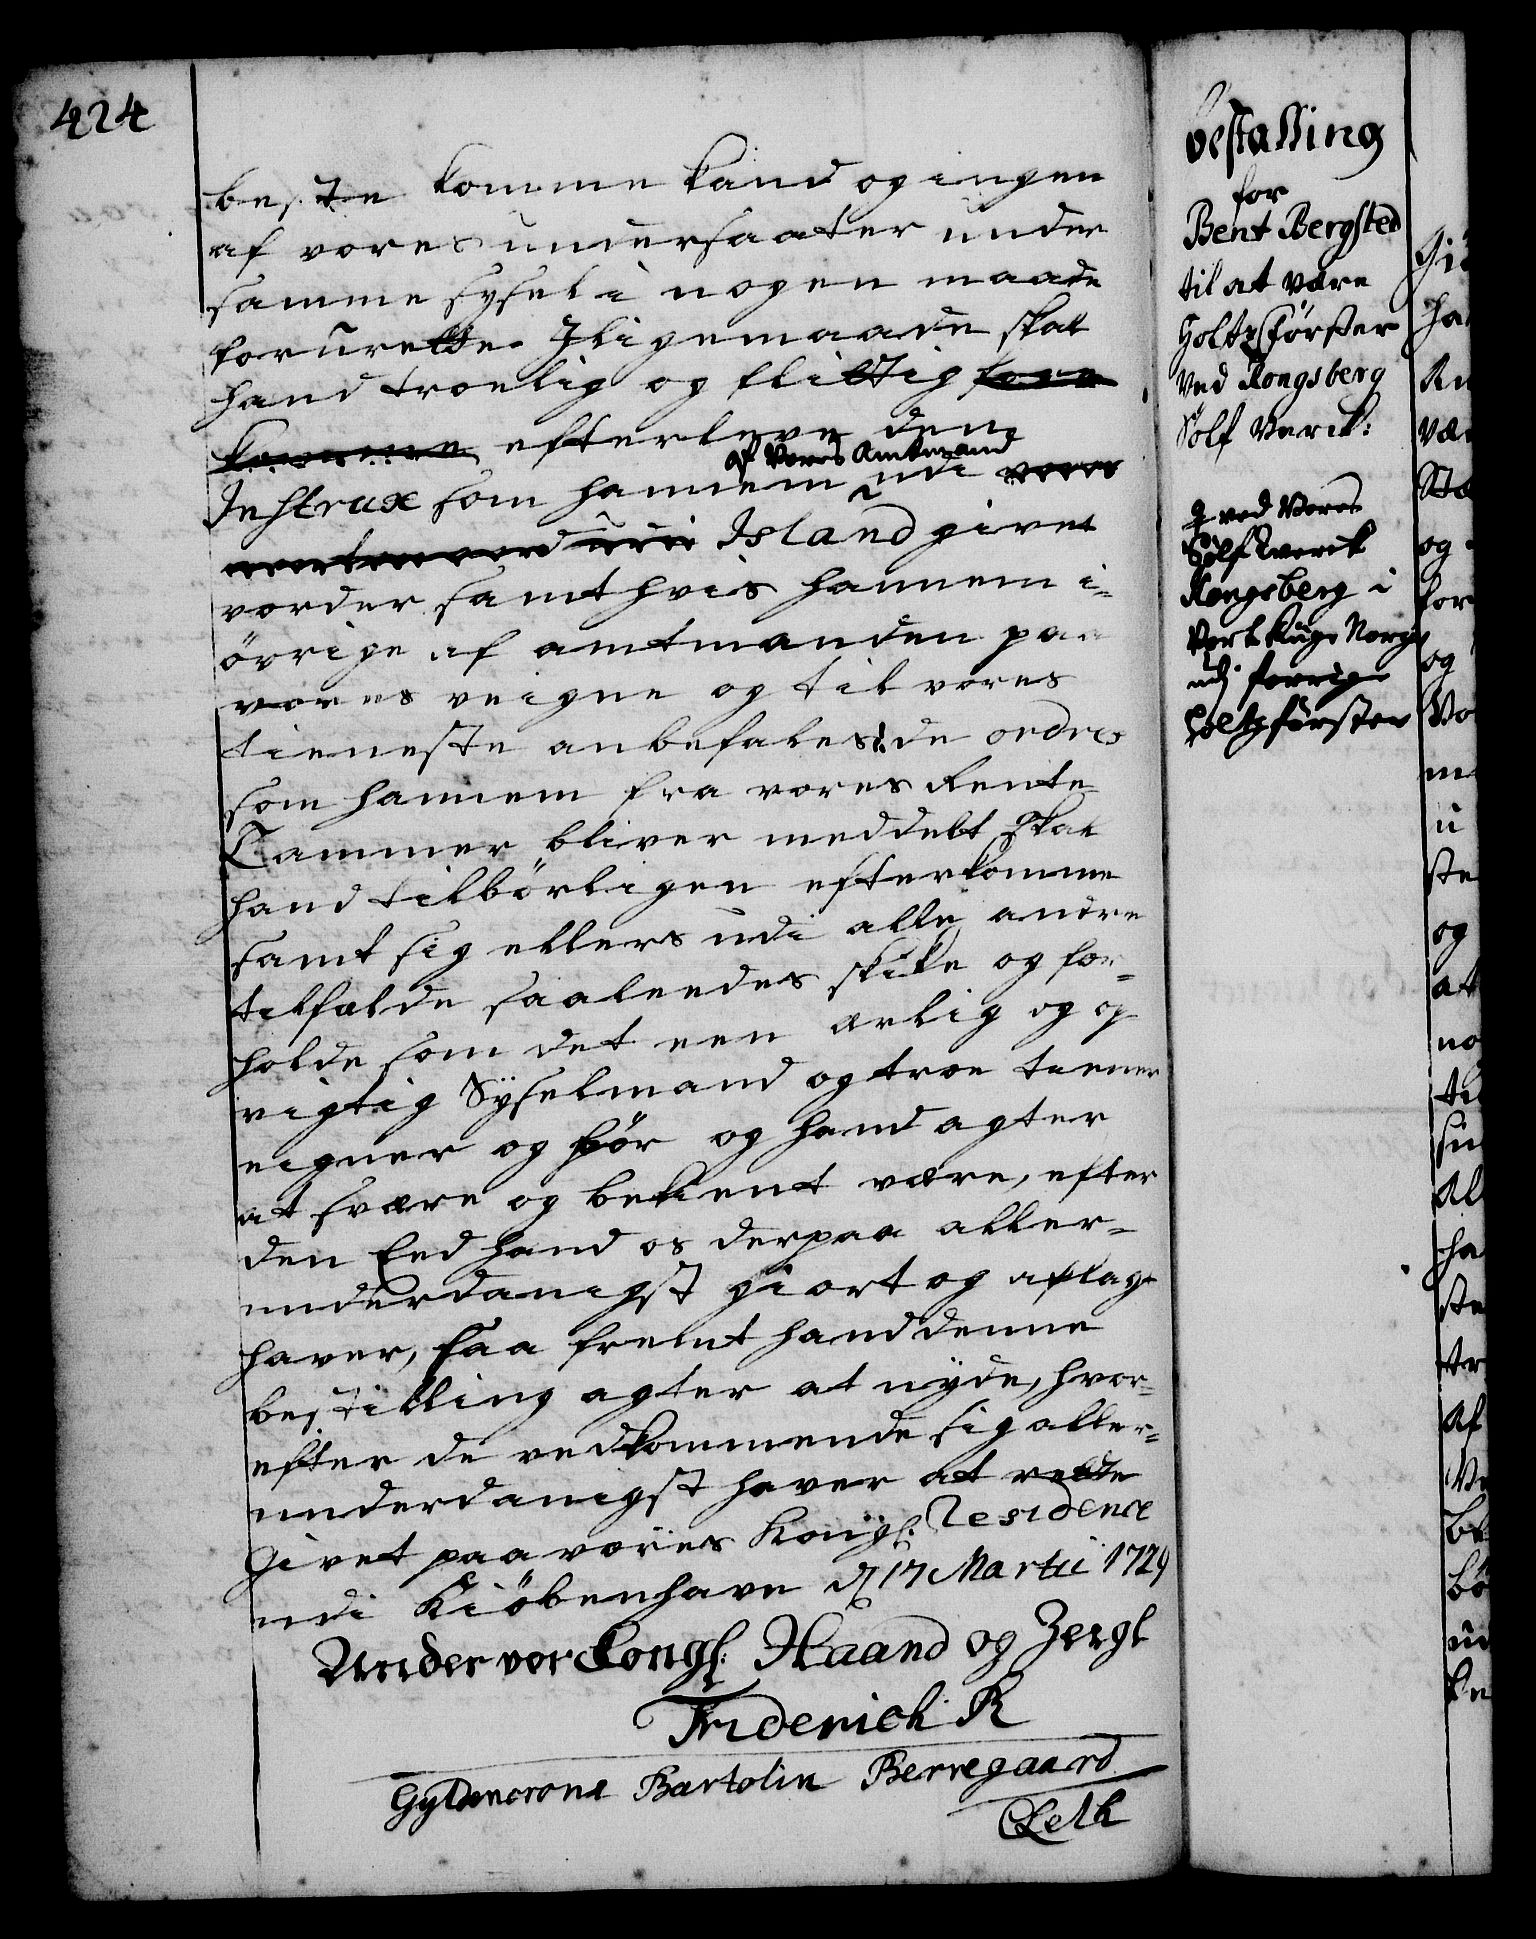 424
beste komme kand og ingen
af vores undersaatter under
samme syssel i nogen maade
forurette. Iligemaade skal
hand troelig og flittig
efterleve den
af Vores Amtmand
Instrux som hannem udi
Island givet
vorder, samt hvis hannem i-
övrige af amtmanden paa
vores veigne og til vores
tieneste anbefales: de ordres
som hannem fra vores Rente-
Cammer bliver meddelt skal
hand tilbörligen efterkomme
samt sig ellers udi alle andre
tilfælde saaleedes skike og for-
holde som det een ærlig og op-
rigtig Sysselmand og troe tiener
eigner og bör og hand agter
at svare og bekient være, efter
den Eed hand os derpaa aller-
underdanigst giort og aflagt
haver, saa fremt hand denne
bestilling agter at nyde, hvor-
efter de vedkommende sig aller-
underdanigst haver at rette
Givet paa vores Kongl: Residence
udi Kiöbenhavn d 17 Martii 1729
Under vor Kongl: Haand og Zergl
Friderich R
Gyldencrone Bartolin Berregaard
Leth
bestalling
for
Bent Bergsted
til at være
Holtzförster
ved Kongsberg
Sölf Verck:
ved Vores
Sölfwerck
Kongsberg i
Vort Rüge Norge
udj forrige
Holtzförster